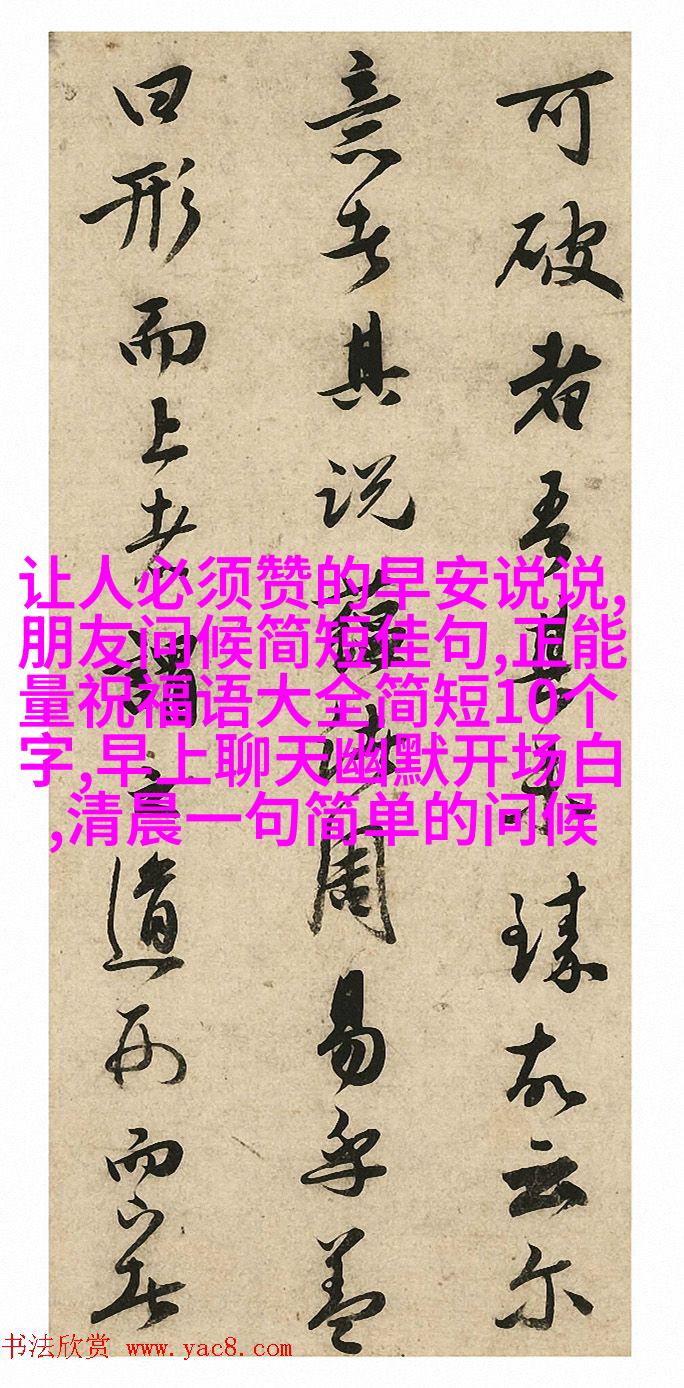 可破者吾其臻故云尔
意者其说周易乎盖
曰形而上者謂之道形而下者
让人必须赞的早安说说,
朋友问候简短佳句,正能
量祝福语大全简短10个
字,早上聊天幽默开场白
,清晨一句简单的问候
书法欣赏 www.yac8.com